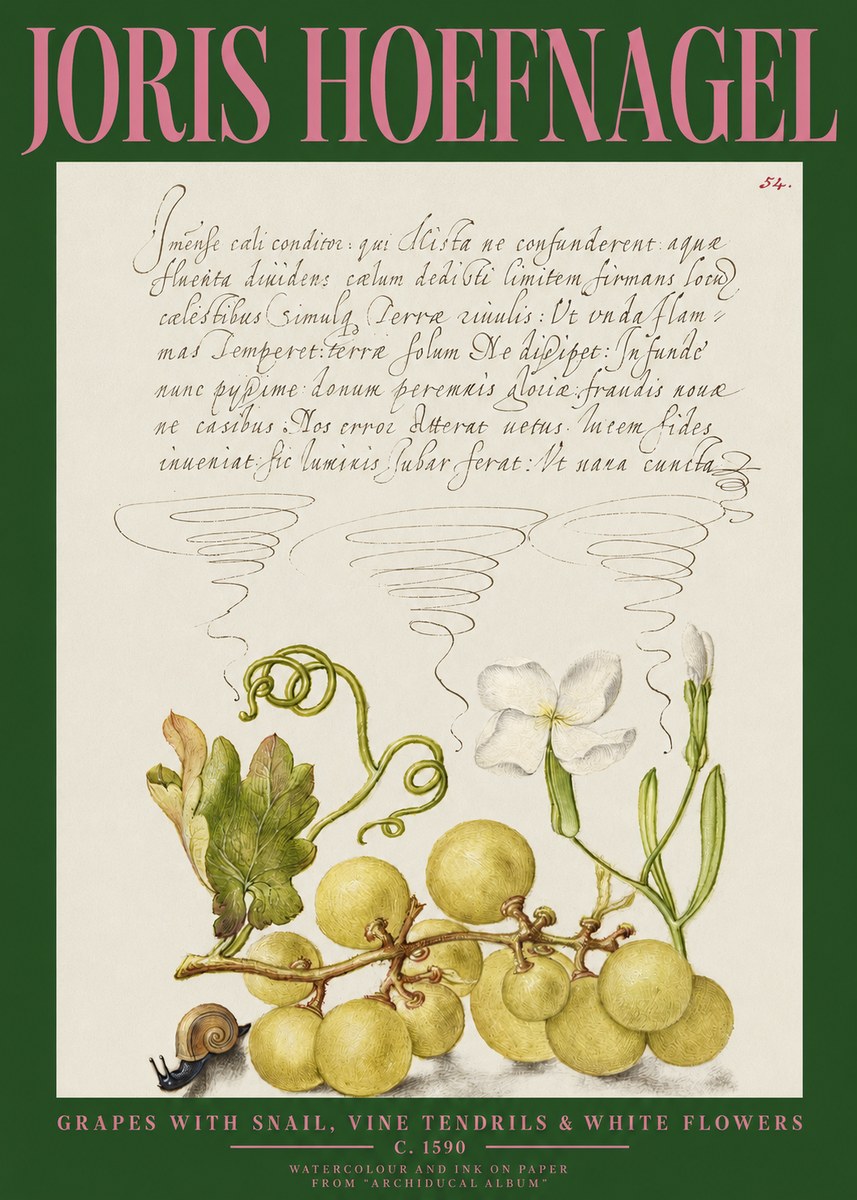 JORIS HOEFNAGEL
54.
Imēnse cæli conditor: qui Mista ne confunderent aquæ
fluenta diuidens cælum dedisti limitem firmans locū
cælestibus Simulq Terræ riuulis: Ut vnda flam=
mas Temperet: terræ solum Ne dissipet: Infunde
nunc pijssime donum perennis gloriæ: fraudis nouæ
ne casibus Nos error Atterat uetus. lucem fides
inueniat: sic luminis Jubar ferat: Ut nana cuncta
GRAPES WITH SNAIL, VINE TENDRILS & WHITE FLOWERS
C. 1590
WATERCOLOUR AND INK ON PAPER
FROM "ARCHIDUCAL ALBUM"